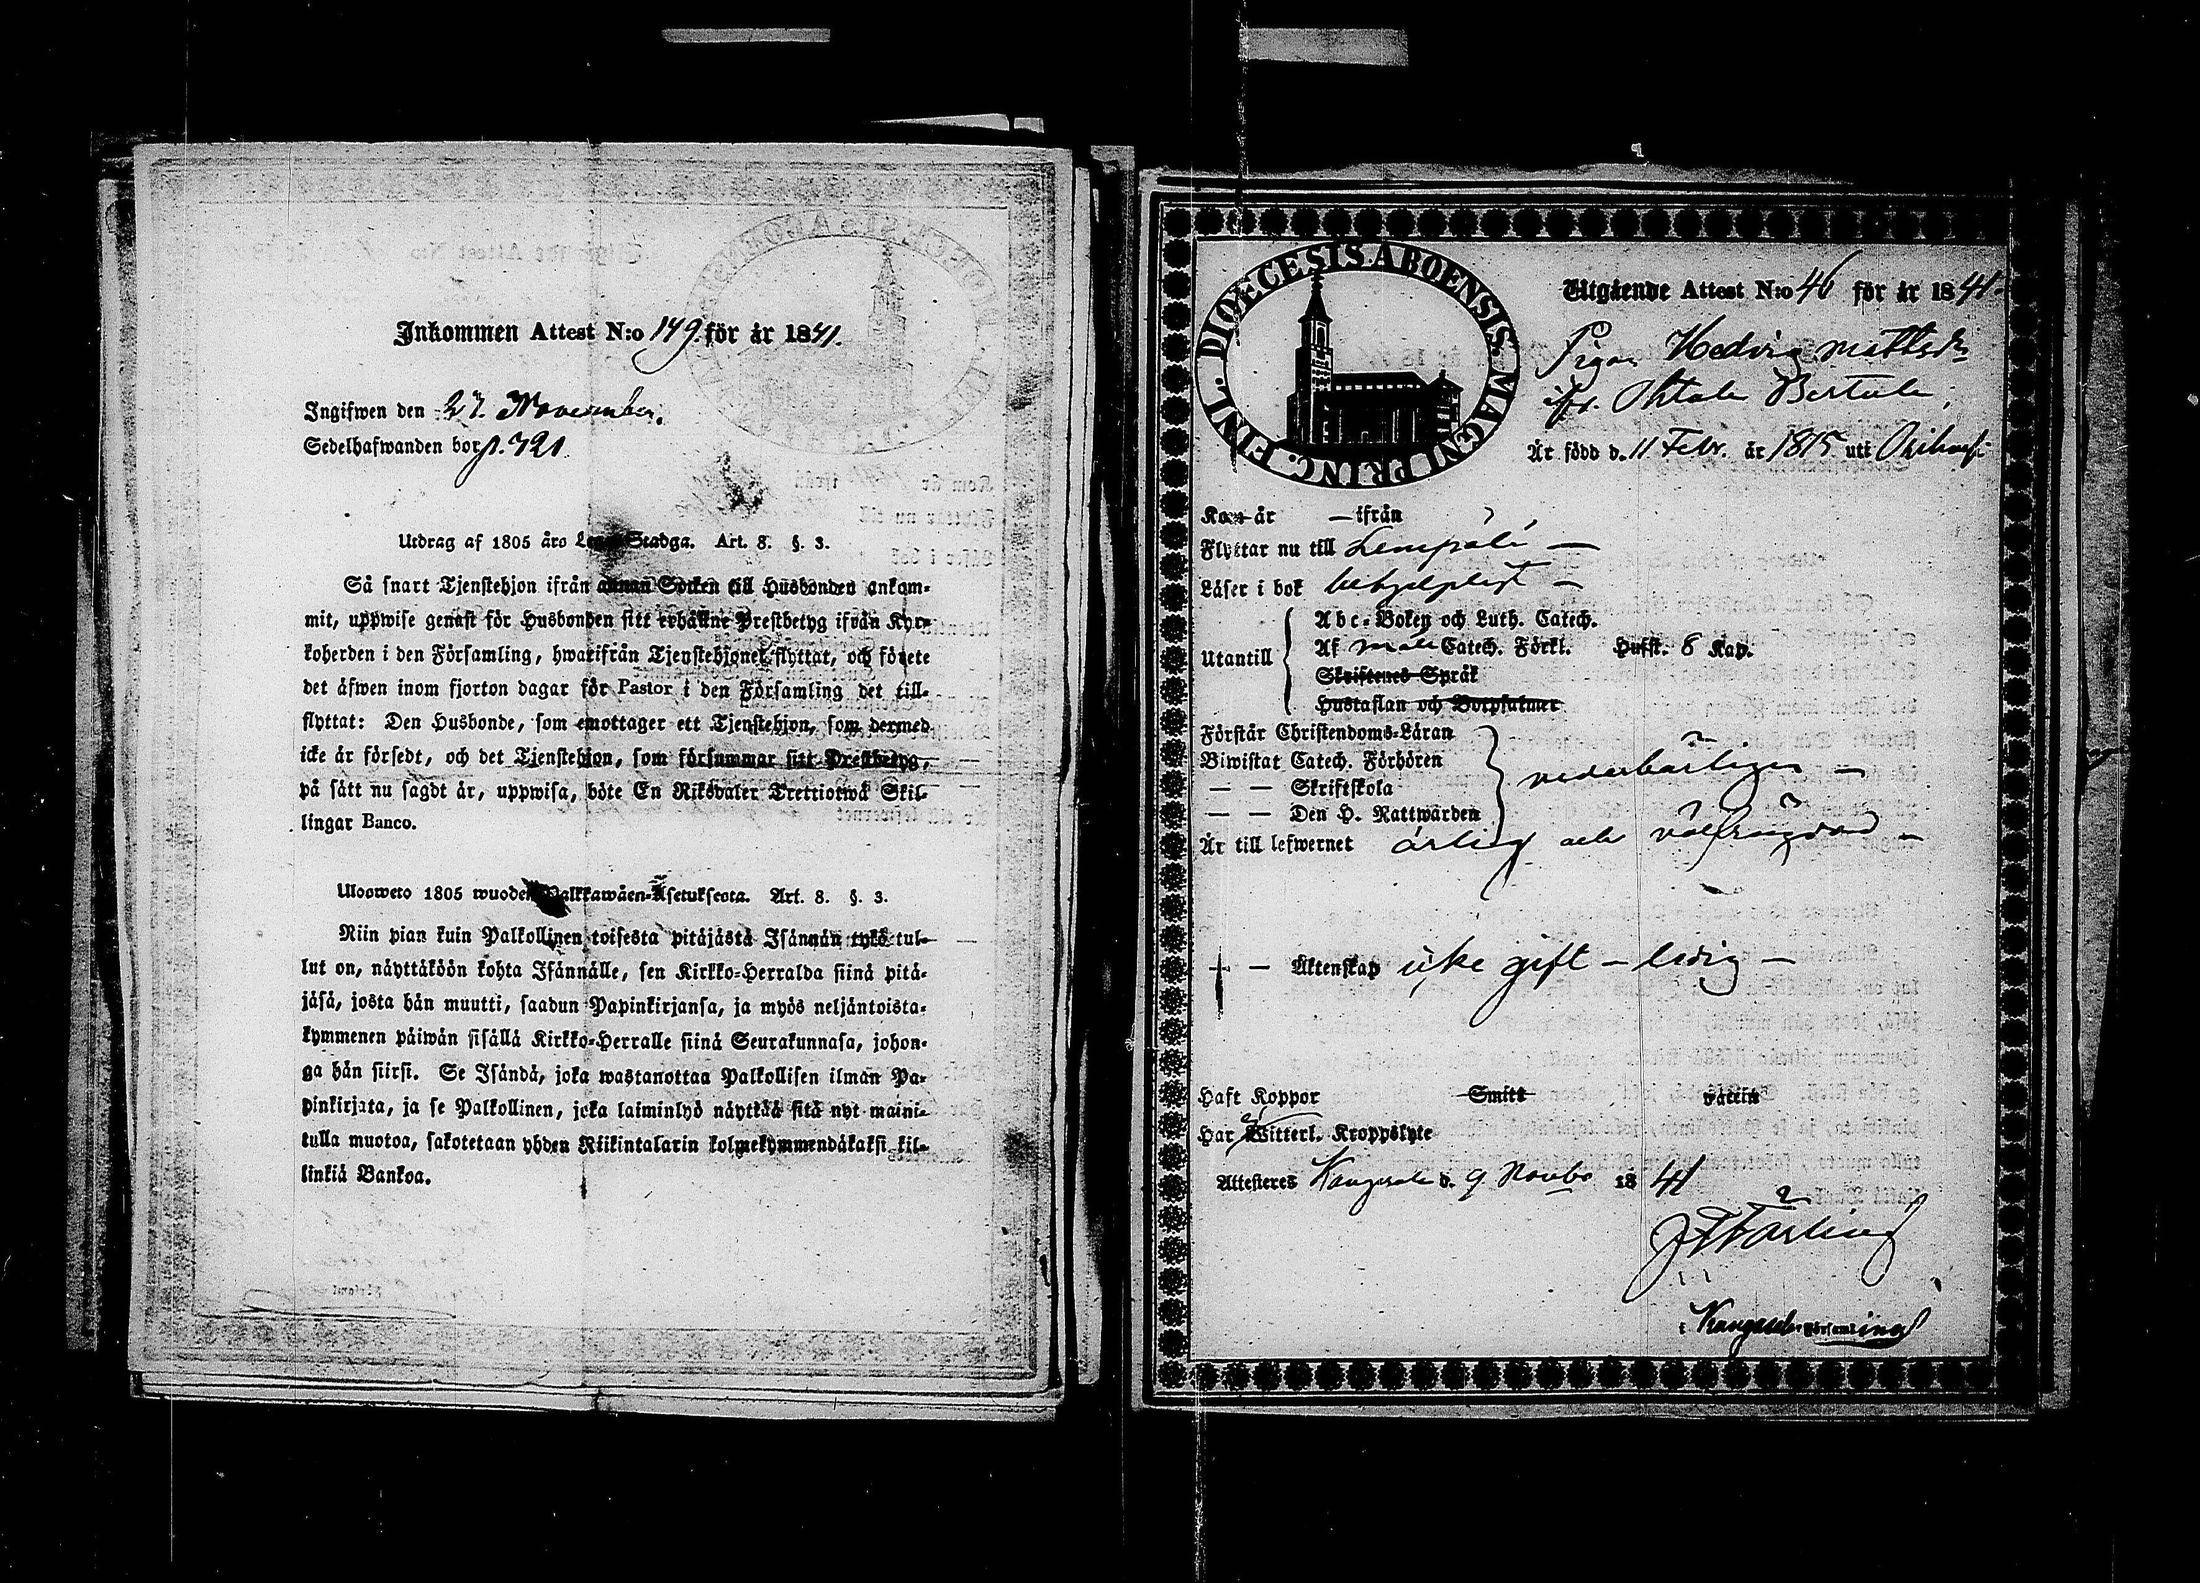 Inkommen Attest N:o 149. för år 1841.
Ingifwen den 27. November.
Sedelhafwanden bor p. 721.
Utdrag af 1805 års Lego-Stadga. Art. 8. §. 3.
Så snart Tjenstehjon ifrån annan Socken till Husbonden ankom-
mit, uppwise genast för Husbonden sitt erhållne Prestbetyg ifrån Kyr-
koherden i den Församling, hwarifrån Tjenstehjonet flyttat, och förete
det äfwen inom fjorton dagar för Pastor i den Församling det till-
flyttat: Den Husbonde, som emottager ett Tjenstehjon, som dermed
icke är försedt, och det Tjenstehjon, som försummar sitt Prestbetyg,
på sätt nu sagdt är, uppwisa, böte En Riksdaler Trettiotwå Skil-
lingar Banco.
Ulosweto 1805 wuoden Palkkawäen-Asetuksesta. Art. 8. §. 3.
Niin pian kuin Palkollinen toisesta pitäjästä Isännän tykö tul-
lut on, näyttäköön kohta Isännälle, sen Kirkko-Herralda siinä pitä-
jäsä, josta hän muutti, saadun Papinkirjansa, ja myös neljäntoista-
kymmenen päiwän sisällä Kirkko-Herralle siinä Seurakunnasa, johon-
ga hän siirsi. Se Isändä, joka wastanottaa Palkollisen ilman Pa-
pinkirjata, ja se Palkollinen, joka laiminlyö näyttää sitä nyt maini-
tulla muotoa, sakotetaan yhden Riikintalarin kolmekymmendäkaksi kil-
linkiä Bankoa.
DIOECESIS ABOENSIS. MAGNI PRINC. FINL.
Utgående Attest N:o 46 för år 1841.
Pigan Hedvig Mattsdr
ifr. Ohtola Bertula,
Är född d. 11 Febr. år 1815 uti Orihvesi
Kom år — ifrån
Flyttar nu till Lempälä —
Läser i bok behjelpligt —
Utantill
Abc-Boken och Luth. Catech.
Af Catech. Förkl. Husst. 8 Kap.
Skriftenes Språk
Hustaflan och Botpsalmer
Förstår Christendoms-Läran
Biwistat Catech. Förhören
— — Skriftskola
— — Den H. Nattwarden
Är till lefwernet ärlig och välfrägdad —
— — Äktenskap icke gift — ledig —
Haft Koppor Smitt Vaccin
Har Witterl. Kroppslyte
Attesteres Kangasala d. 9 Novbr 1841
i Kangasala Församling